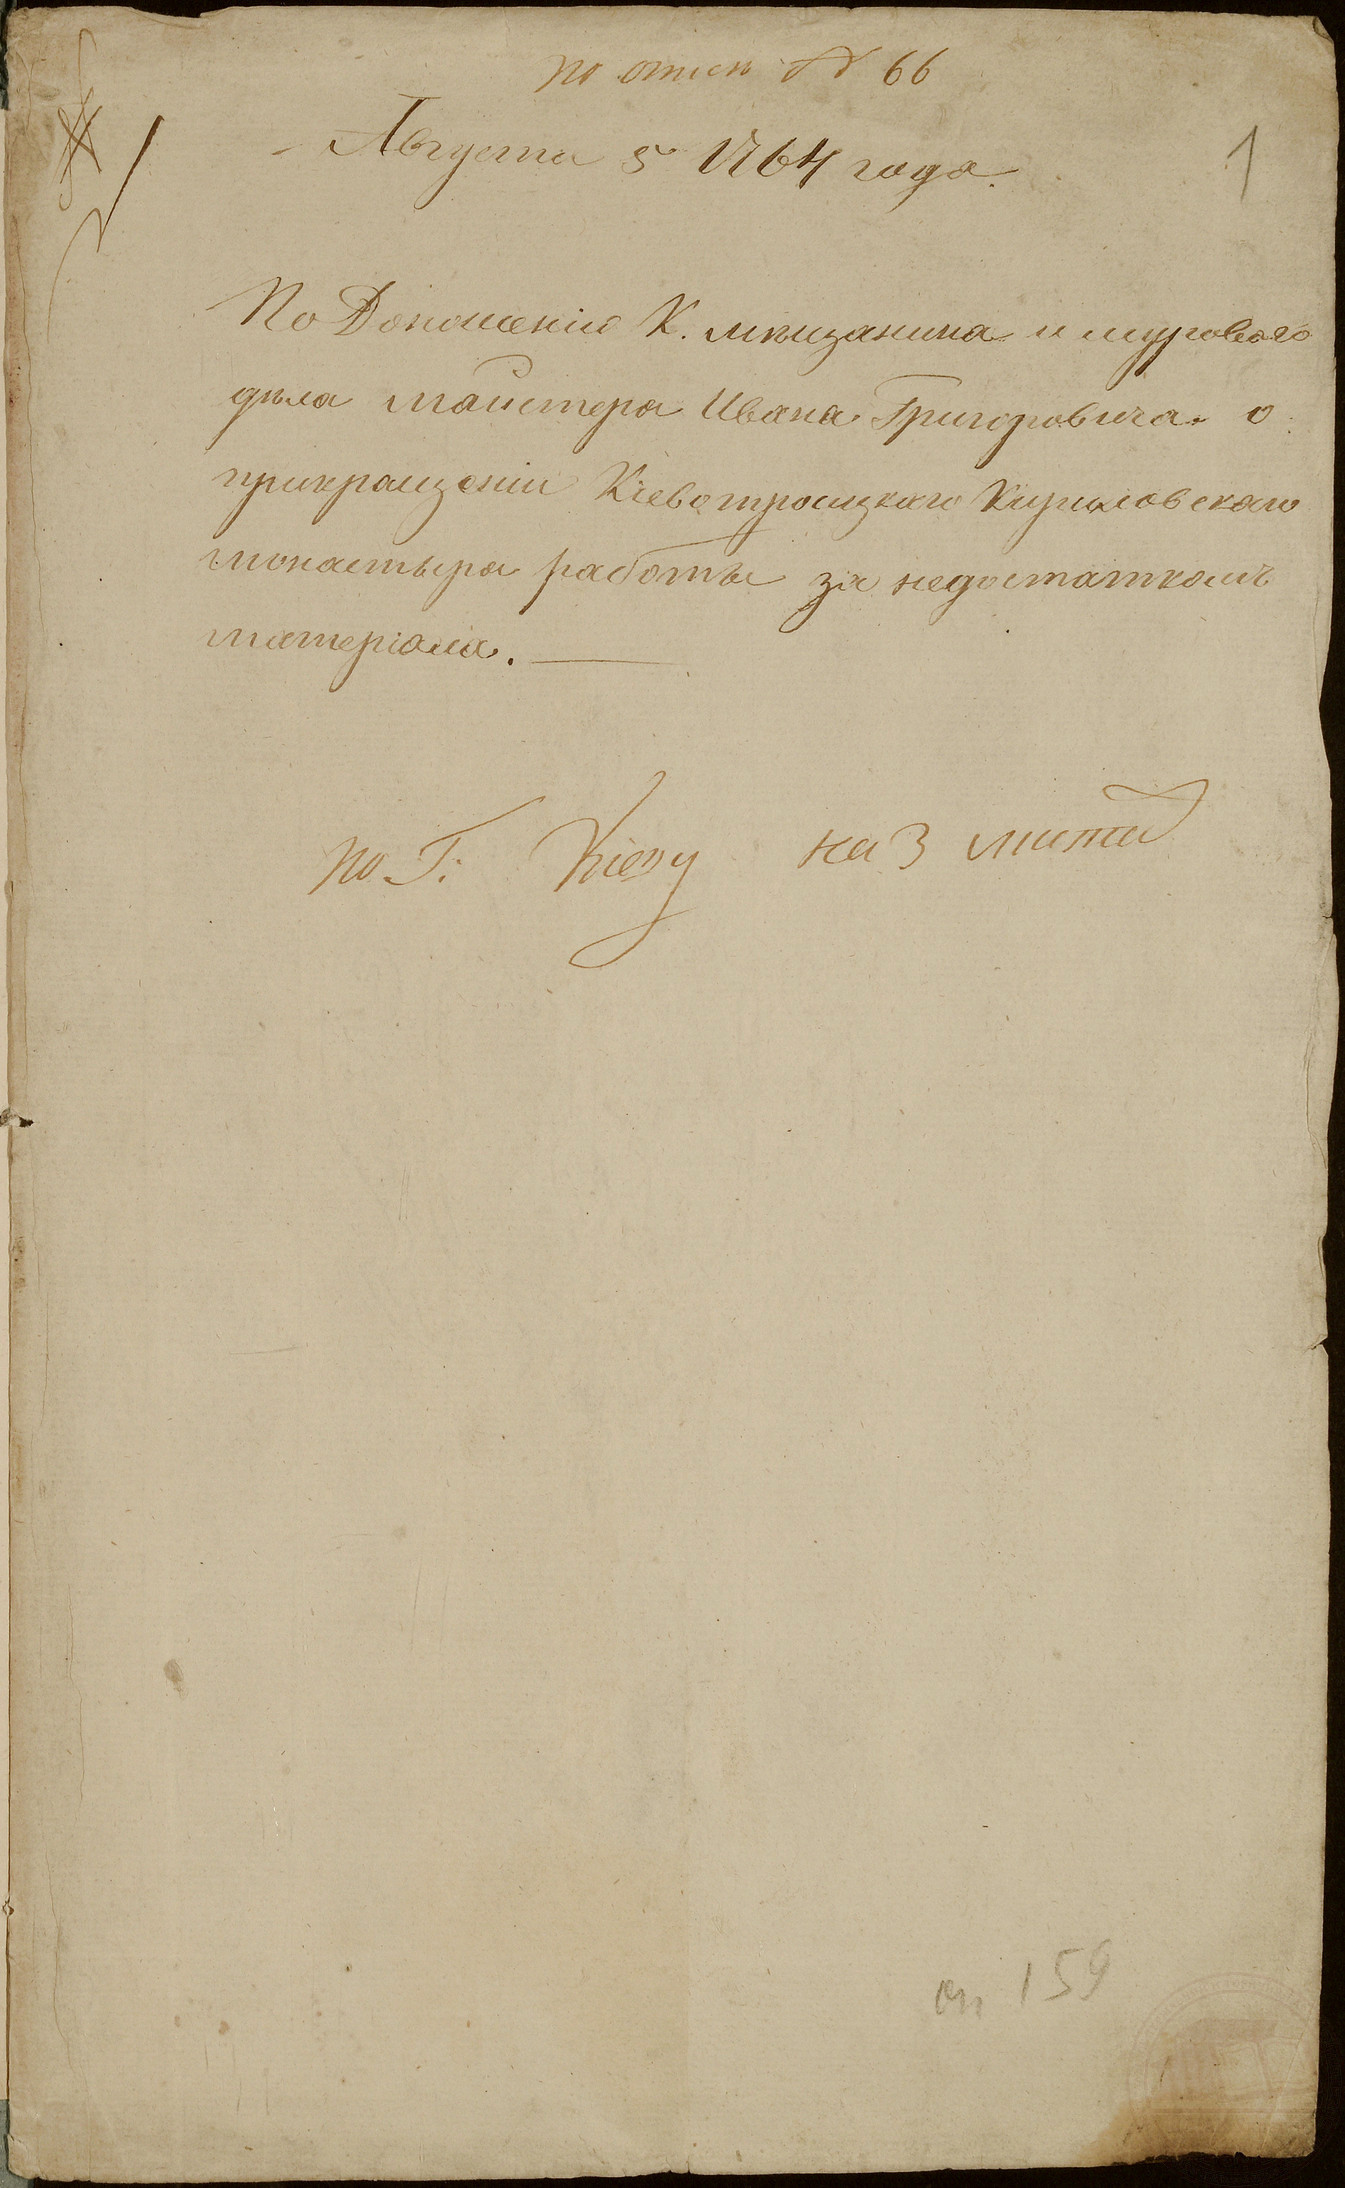 по описи № 66
Августа 5 1764 года.
1
По Доношенію К. мѣщанина и мурового
дѣла майстера Ивана Григоровича о
прикращеніи Кіевотроицкаго Кириловскаго
монастыра работы за недостаткомъ
матеріала.
по Г. Кіеву на 3 листа
оп 159